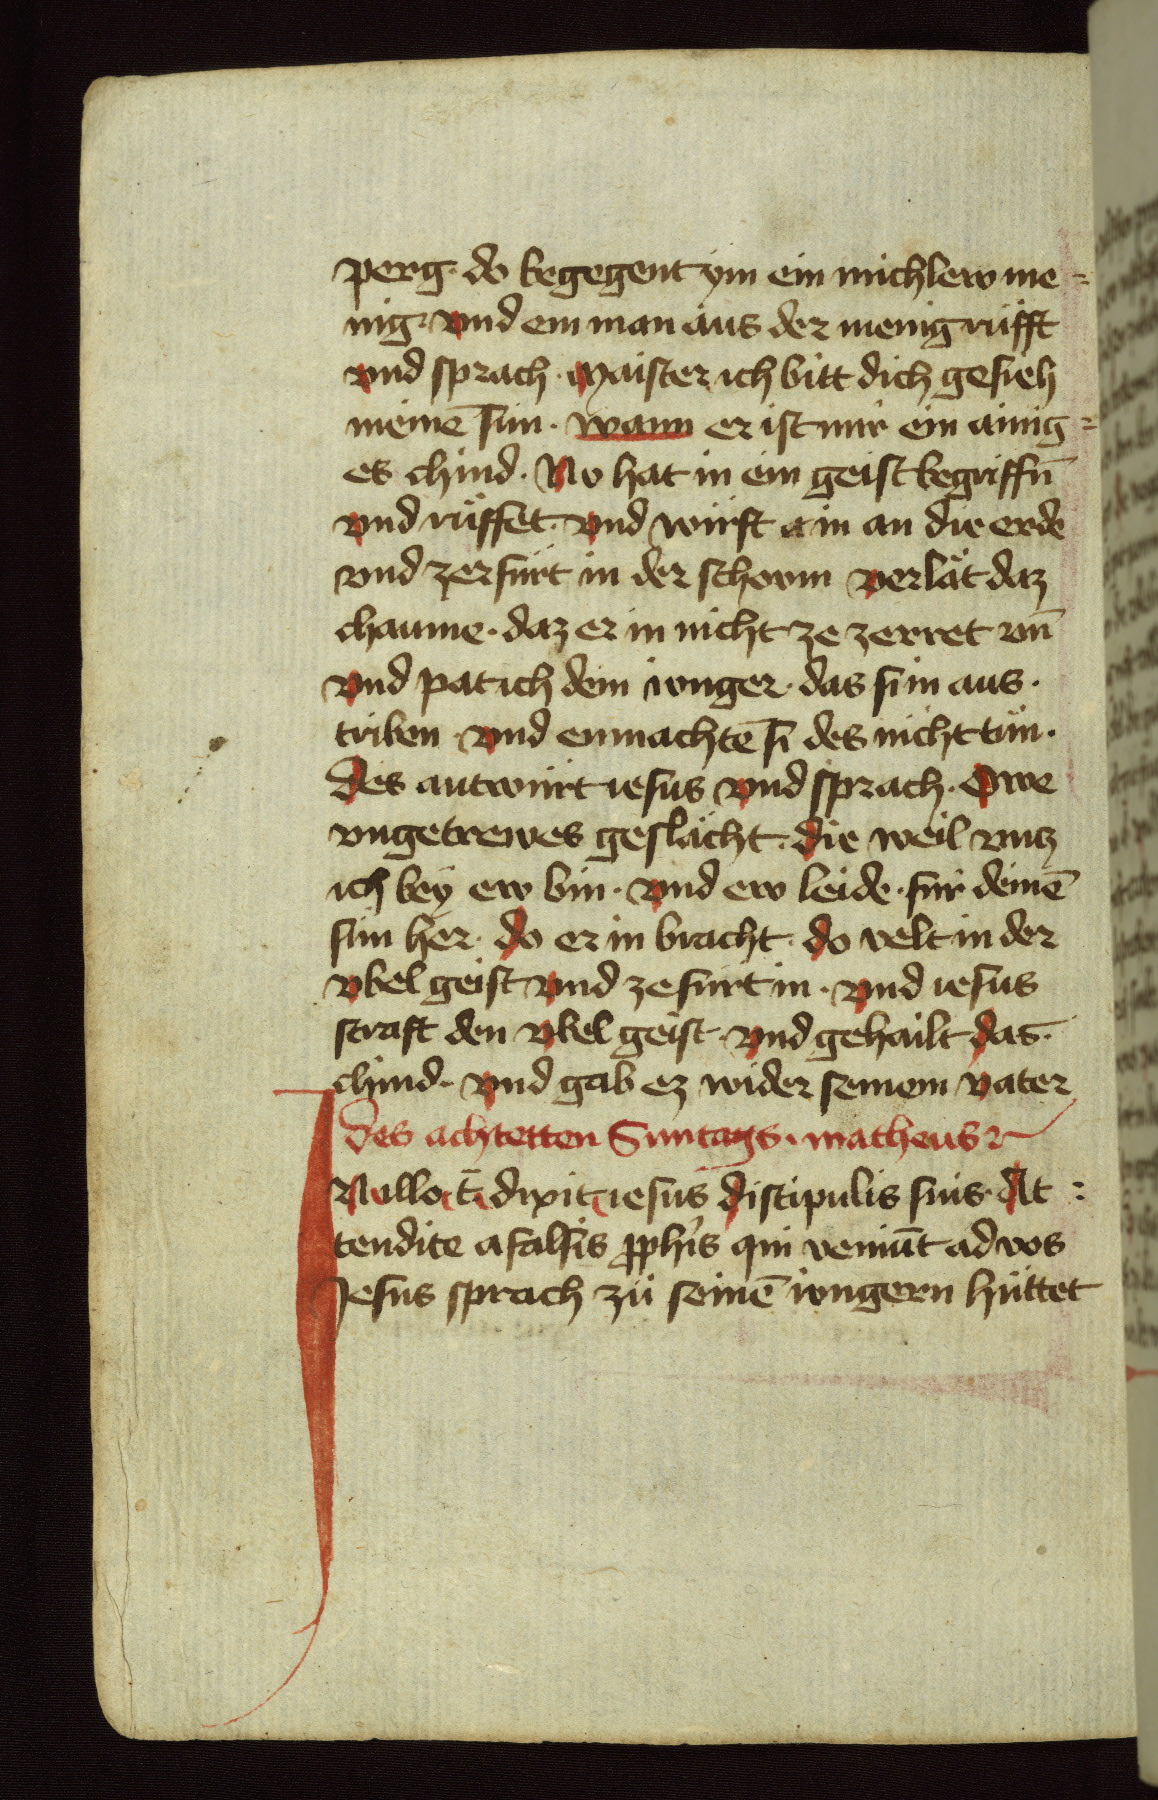 perg · do begegent ẏm ein michlew me⸗
nig · vnd ein man aus der menig rüfft
vnd sprach · Maister ich bitt dich gesieh
meinē sun · wann er ist mir ein ainig⸗
es chind · Nv hat in ein geist begriffn̄
vnd rüffet · vnd würft a in an die erde
vnd zerfürt in der schovm verlät daz
chaume · daz er in nicht ze zerret vn̄
vnd pat ich dein iunger · das si in aus ·
triben · vnd enmachtē si des nicht tün ·
Des antwürt iesus vnd sprach · Owe
vngetrewes geslächt · die weil vntz
ich beÿ ew bin · vnd ew leide · für deinē
sun her · do er in bracht · do velt in der
vbel geist vnd zefurt in · vnd iesus
straft den vbel geist · vnd gehailt das ·
chind · vnd gab ez wider seinem vater
des achtetten Suntags · matheus
IN illo t̄ dixit iesus discipulis suis · At :
tendite a falsis ꝓphis qui veniūt ad vos
Jesus sprach zü seinē iungern hüttet